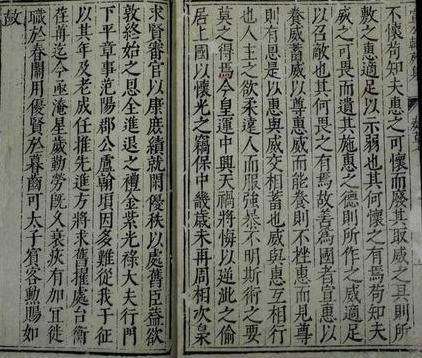 不懷苟知夫惠之可懷而廢其取威之具則所
敷之惠適足以示弱也其何懷之有焉苟知夫
威之可畏而遺其施惠之德則所作之威適足
以召敵也其何畏之有焉故善為國者宣惠以
養威蓄威以尊惠威而能養則不挫惠而見尊
則有恩是以惠與威交相蓄也威與惠互相行
也人主之欲柔遠人而服強暴不明斯術之要
莫之得焉今皇運中興天禍將悔以逆泚之偷
居上國以懷光之竊保中畿歲未再周相次梟
求賢審官以康庶績就閑優秩以處舊臣蓋欲
敦終始之恩全進退之禮金紫光祿大夫行門
下平章事范陽郡公盧翰頃因多難從我于征
以其年及老成任推先進方將求舊擢處台衡
荏苒迄今亟淹星歲勤勞既久衰疾有加宜徙
職於春闈用優賢於暮齒可太子賓客勲賜如
故